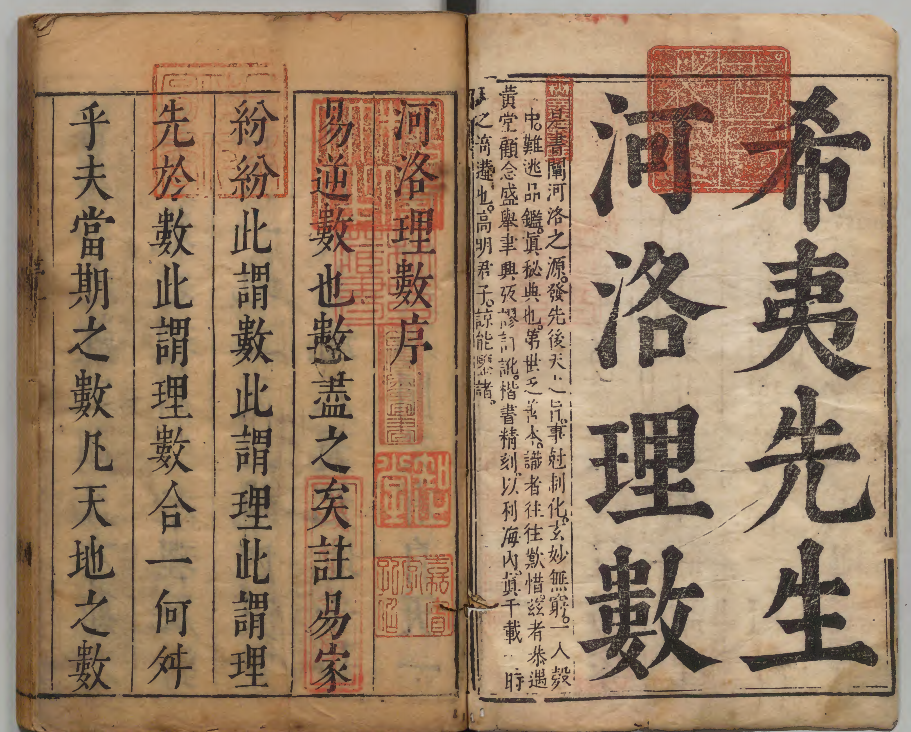 希夷先生
河洛理數
是書闡河洛之源。發先後天之旨。事尅制化。玄妙無窮。一人彀
中。難逃品鑑。真秘典也。第世乏善本。識者往往歎惜。茲者恭遇
黄堂顧念盛舉聿興殁謬訂訛。楷書精刻。以利海内。真千載一時
之奇遘也。高明君子。諒能鑒諸。
河洛理數序
易逆數也數盡之矣註易家
紛紛此謂數此謂理此謂理
先於數此謂理數合一何舛
乎夫當期之數凡天地之數